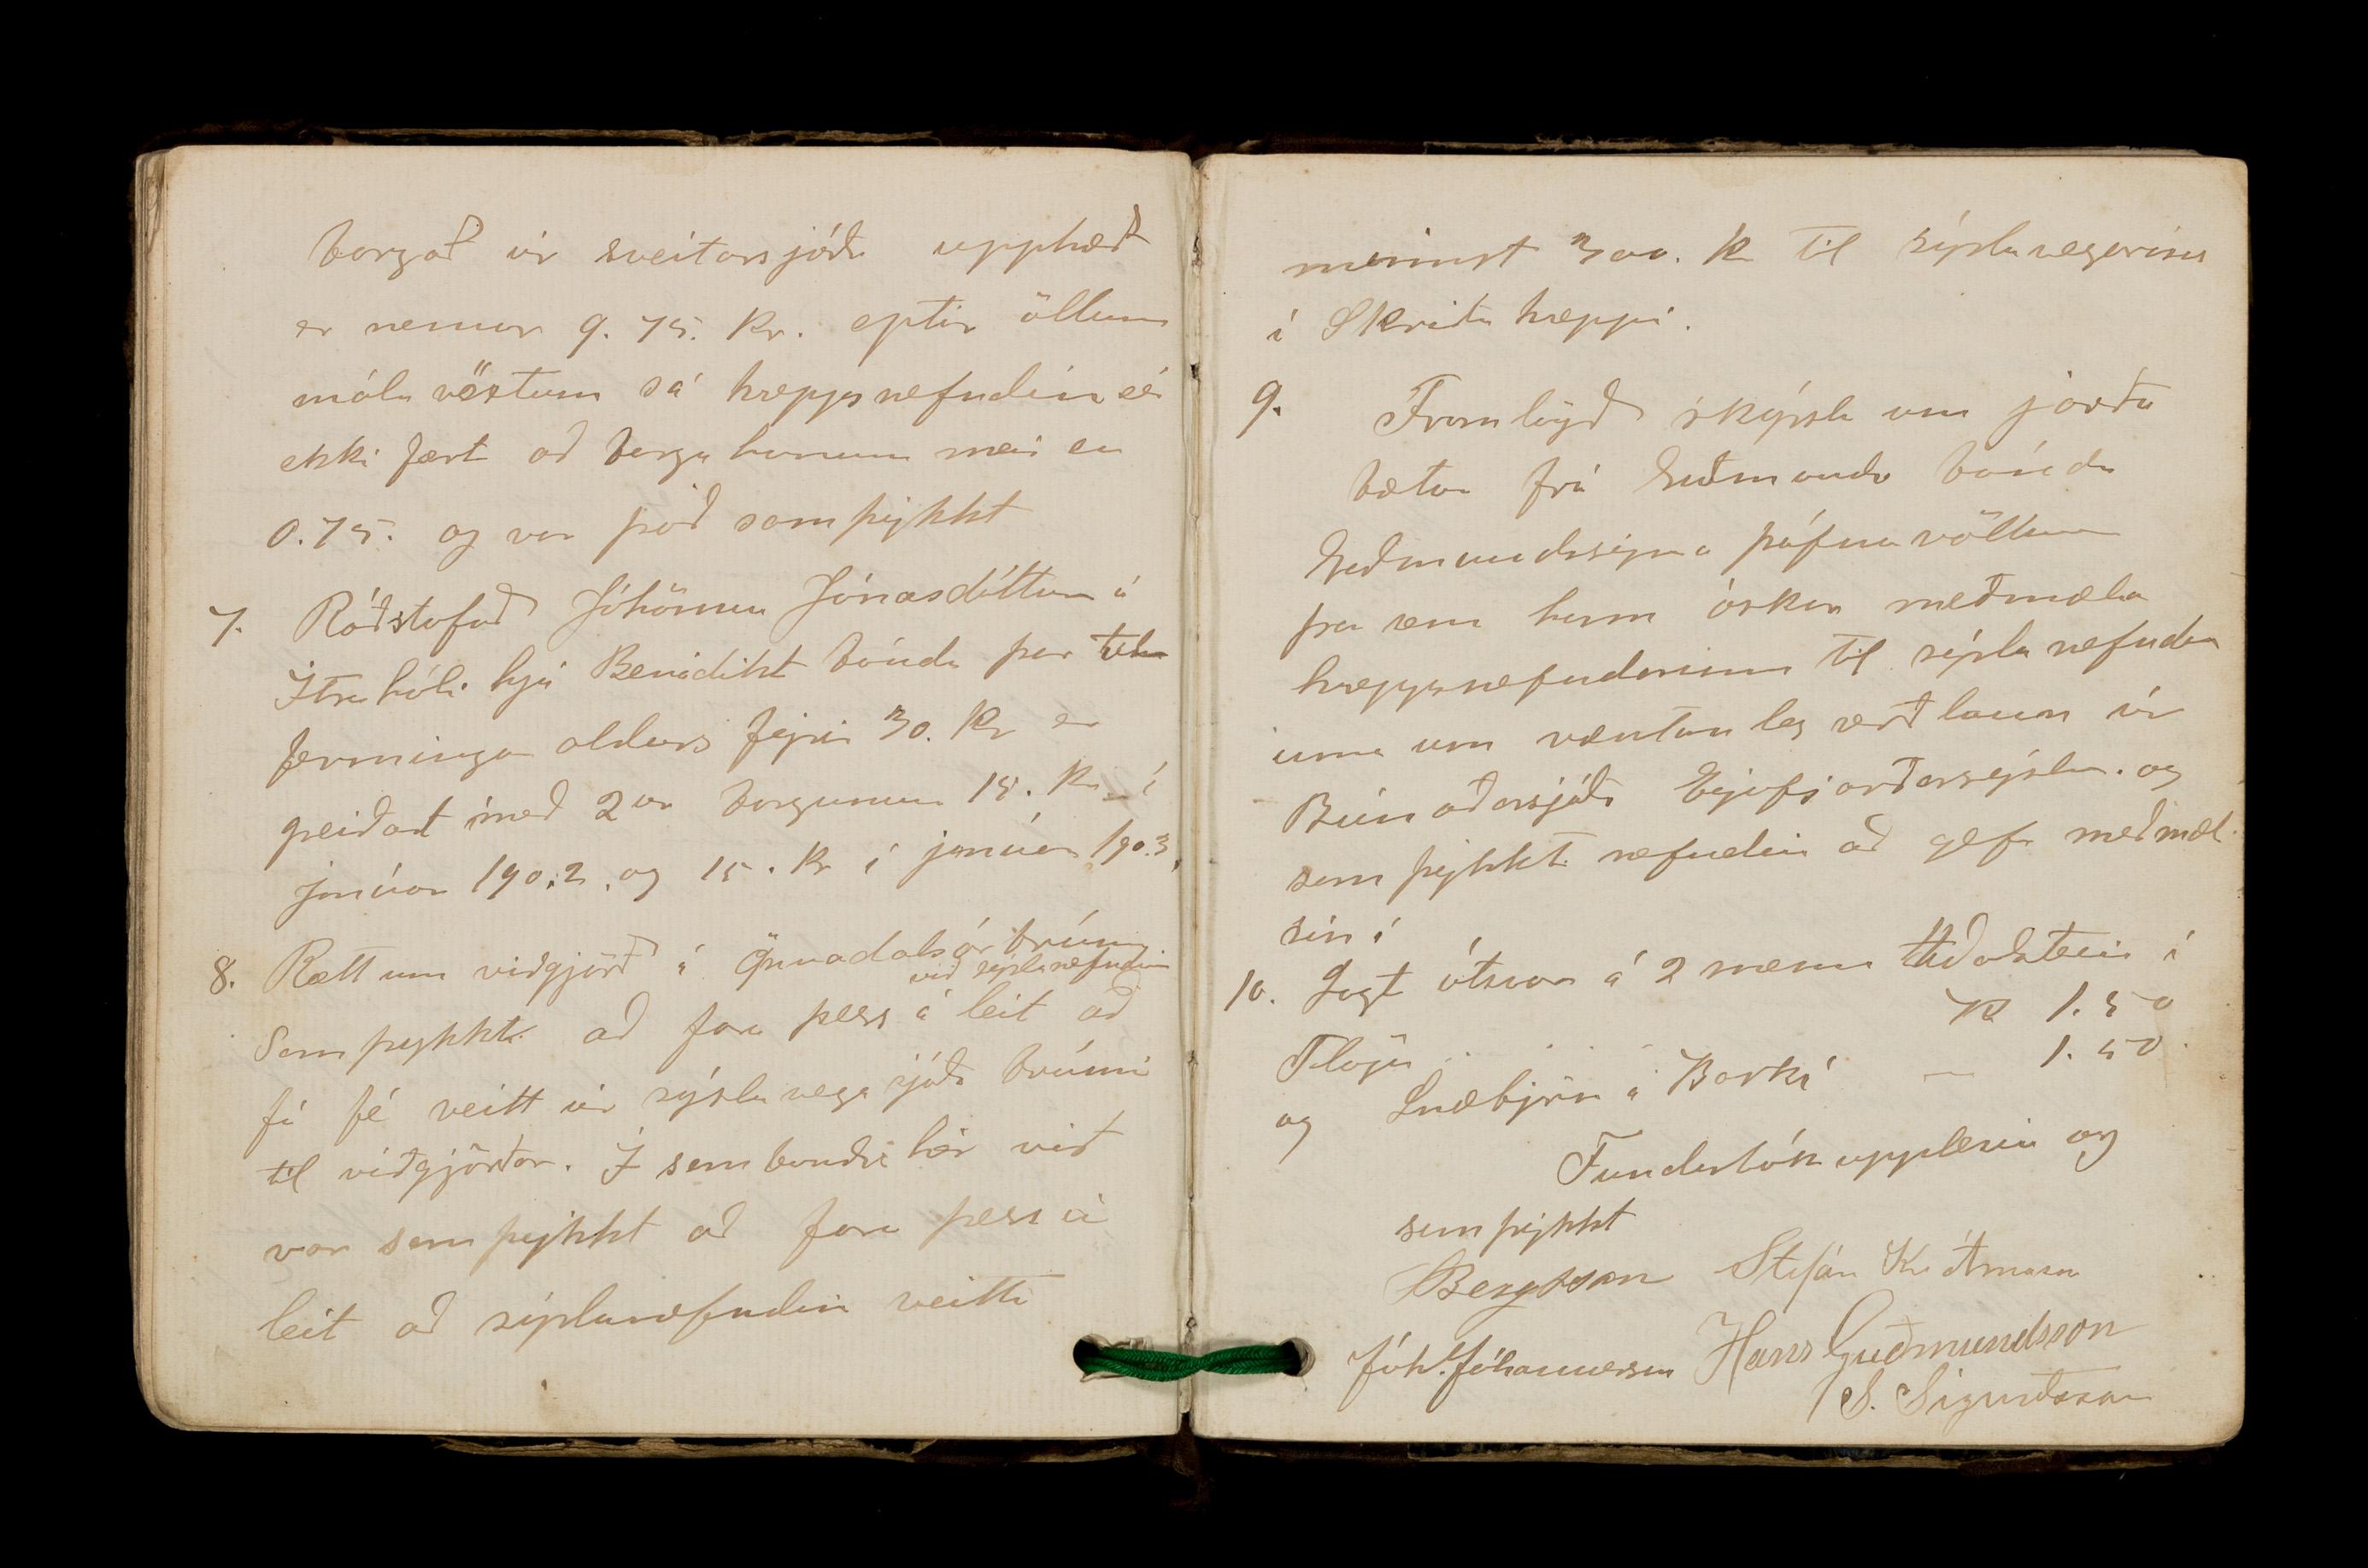 borgað úr sveitarsjóði upphæð
er nemur 9.75. kr. eptir öllum
mála vöxtum sá hreppsnefndin sér
ekki fært að borga honum meir en
0.75. og var það samþykkt
7. Ráðstafað Jóhönnu Jónasdóttur á
Ytra hóli hjá Benidikt bónda þar til
fermingar aldurs fyrir 30. kr er
greiðast með 2ur borgunum 15. kr í
Janúar 1902. og 15. kr í janúar 1903.
8. Rætt um viðgjörð á Öxnadalsár brúnni
við sýslunefndina
Samþykkt að fara þess á leit að
fá fé veitt úr sýsluvega sjóði brúnni
til viðgjörðar. Í sambandi hér við
var samþykkt að fara þess á
leit að sýslunefndin veitti
minnst 300. kr til sýsluvegarins
í Skriðu hreppi.
9. Framlögð skýrsla um jarða
bætur frá Guðmundi bónda
Guðmundssyni á Þúfnavöllum
þar sem hann óskar meðmæla
hreppsnefndarinnar til sýslunefndar
innar um væntanleg verðlaun úr
Búnaðarsjóði Eyjafjarðarsýslu. og
samþykkti nefndin að gefa meðmæli
sín í
10. Lagt útsvar á 2 menn Aðalstein í
Flögu kr 1.50
og Snæbjörn á Barká — 1.50.
Fundarbók upplesin og
samþykkt
Bergsson Stefán
Jóh. Jóhannesson Hans Guðmundsson
S. Sigurðsson